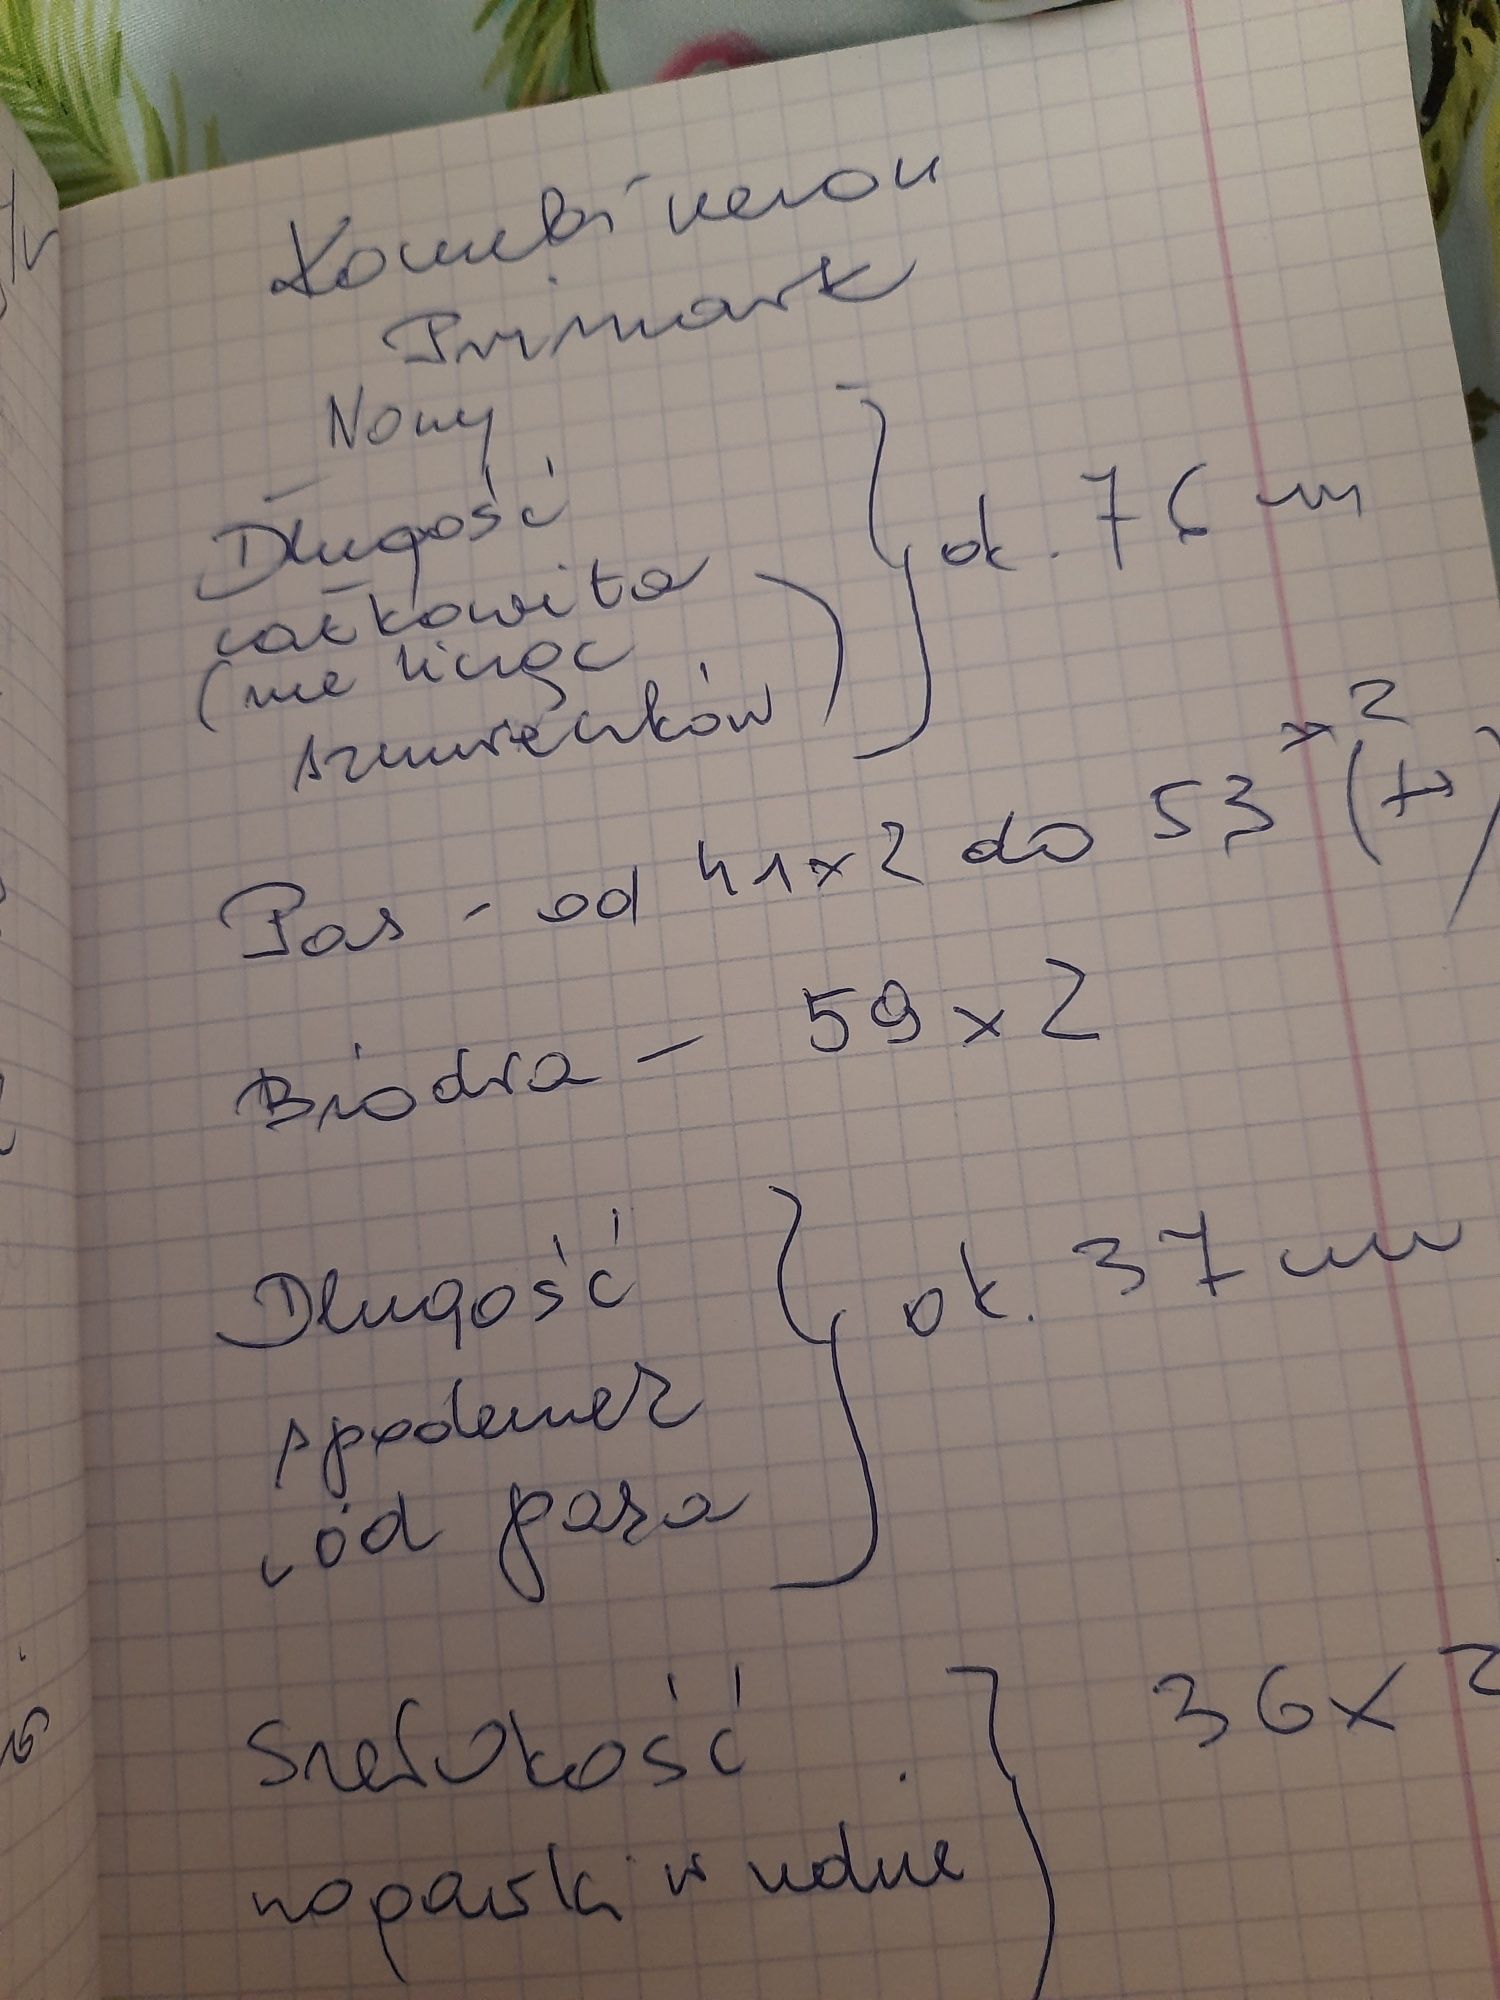 Kombinezon
Primark
Nowy
Długość
całkowita
(nie licząc
sznureczków) ok. 76 cm
Pas - od 41x2 do 53x2 (+)
Biodra - 59x2
Długość ok. 37 cm
spodenek
od pasa
Szerokość 36x2
nogawki w udzie